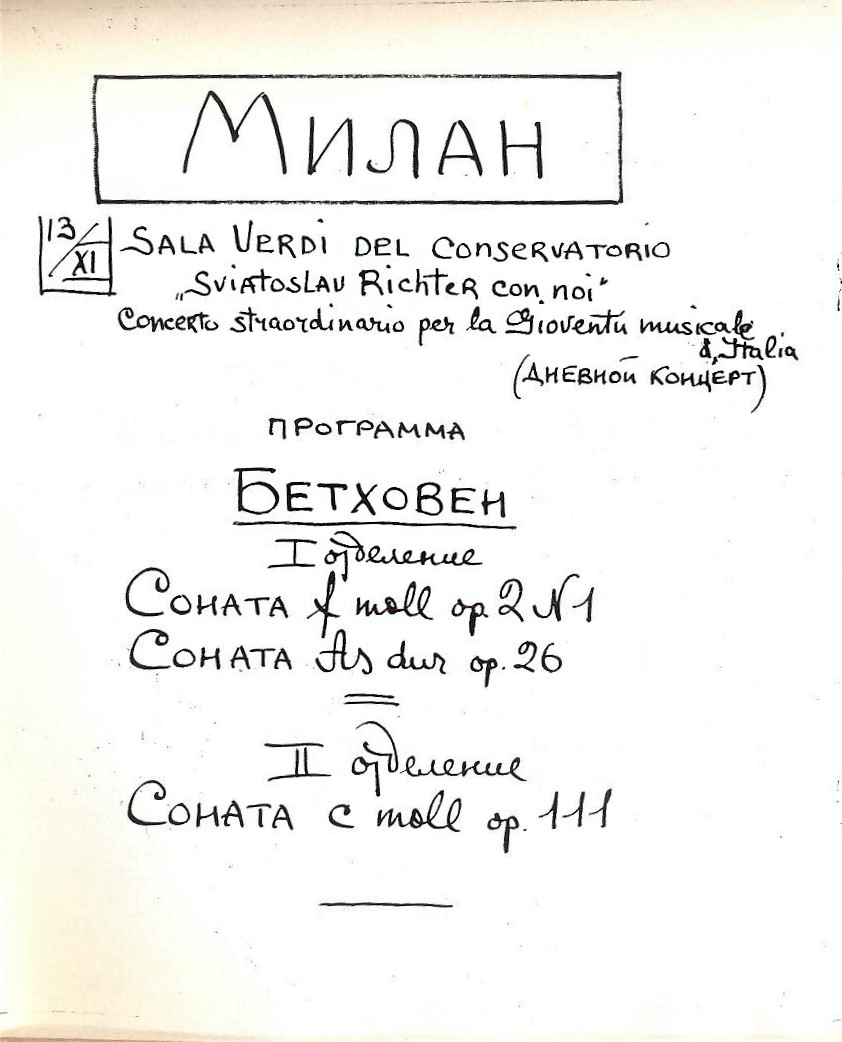 Милан
13/XI Sala Verdi del Conservatorio
„Sviatoslav Richter con noi“
Concerto straordinario per la Gioventú musicale
d'Italia
(дневной концерт)
программа
Бетховен
I отделение
Соната f moll op. 2 N 1
Соната As dur op. 26
II отделение
Соната c moll op. 111